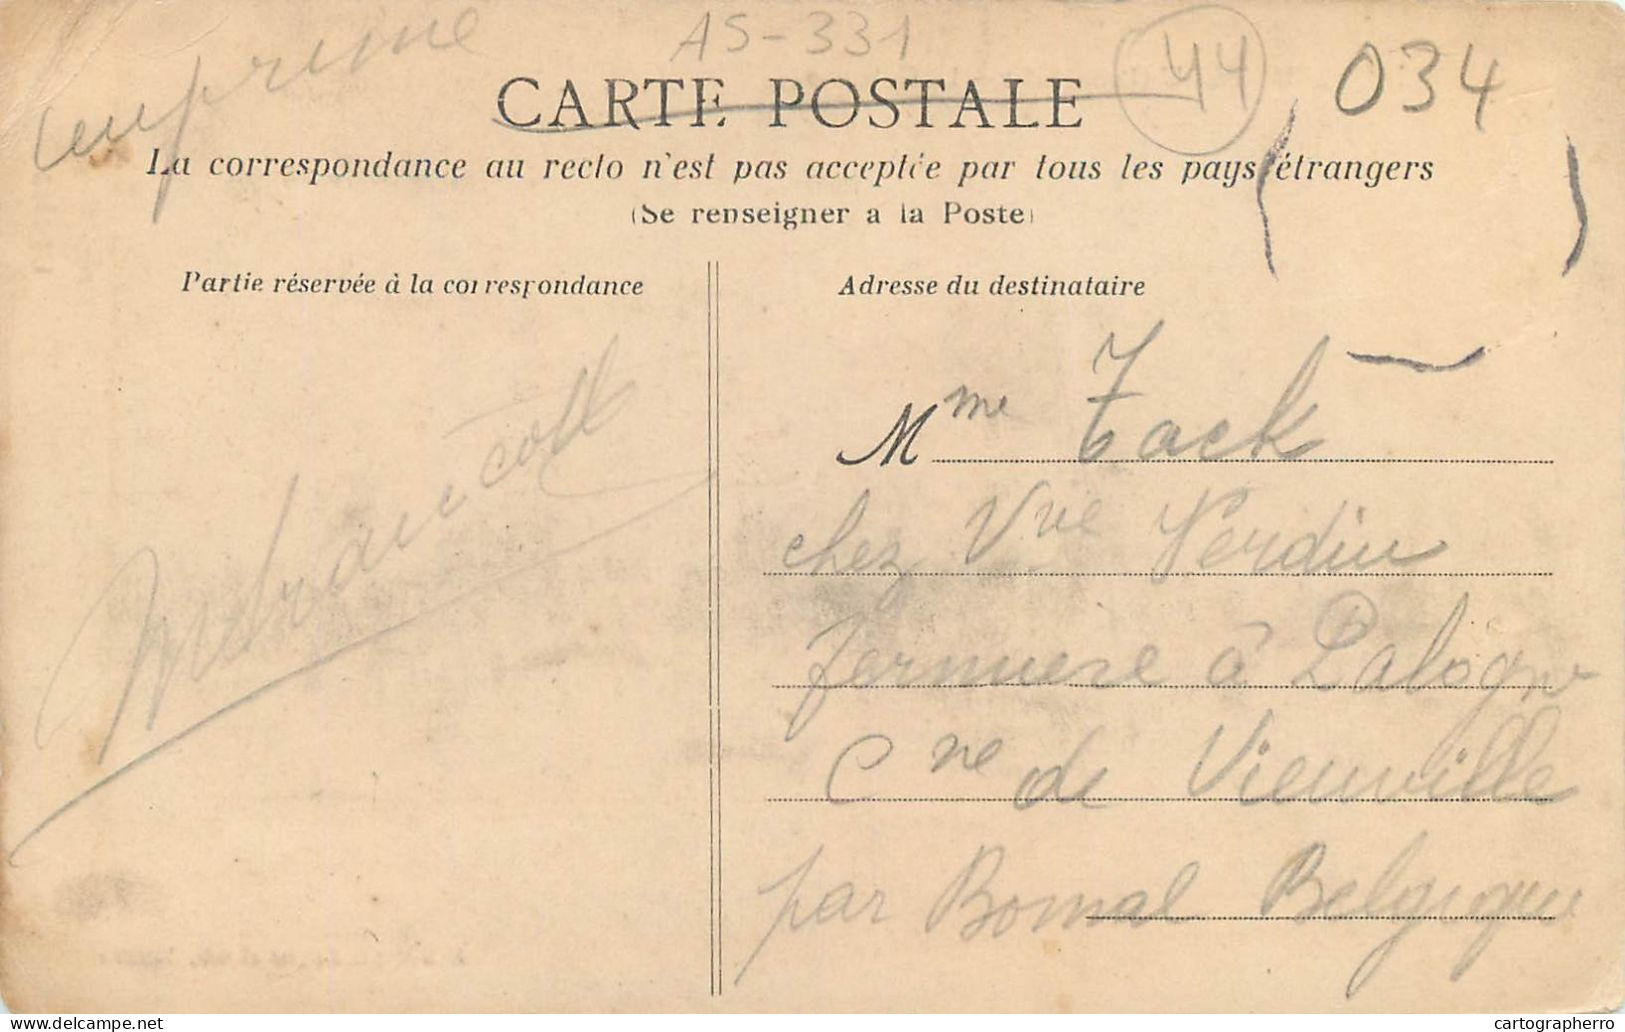 imprimé
AS-331
44
034
CARTE POSTALE
La correspondance au recto n'est pas acceptée par tous les pays étrangers
(Se renseigner a la Poste)
Partie réservée à la correspondance
Adresse du destinataire
Mme Tack
chez Vve Verdin
fermiere à Palogne
Cne de Vieuville
par Bomal Belgique
www.delcampe.net
cartographerro